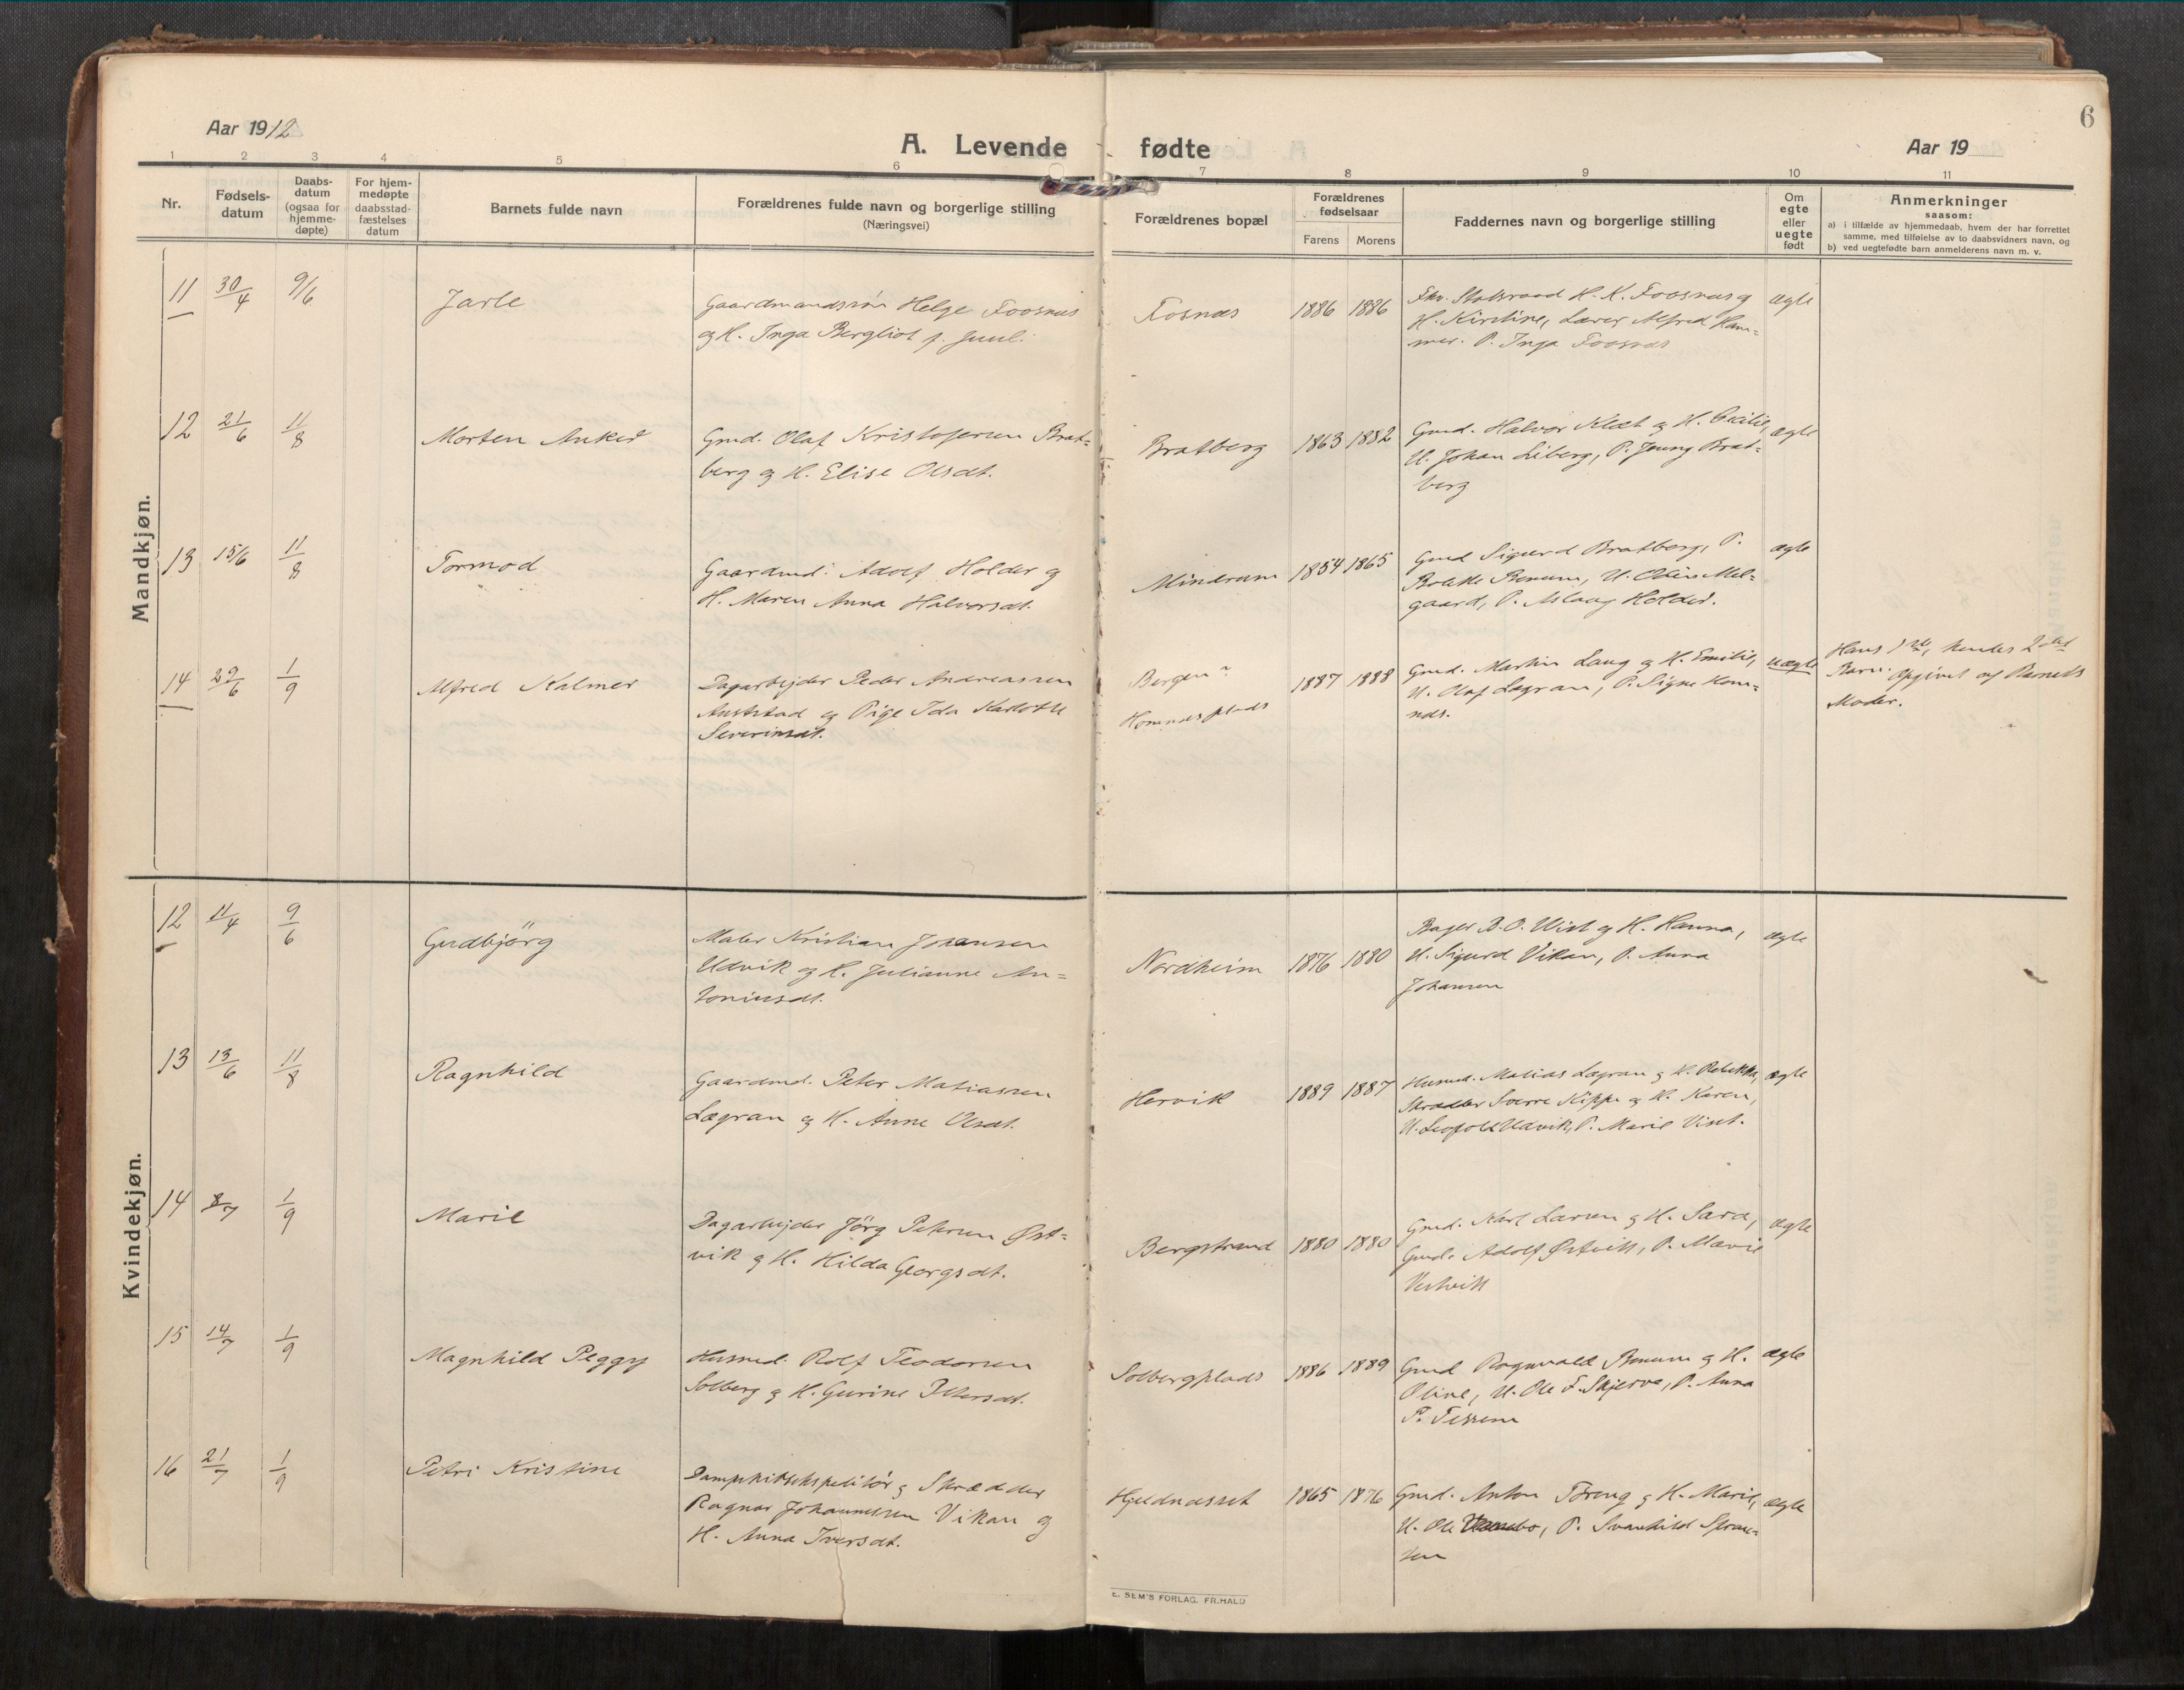 6
Aar 1912
A. Levende fødte
Aar 19
1 2 3 4 5 6 7 8 9 10 11
Nr.
Fødsels-
datum
Daabs-
datum
(ogsaa for
hjemme-
døpte)
For hjem-
medøpte
daabsstad-
fæstelses
datum
Barnets fulde navn
Forældrenes fulde navn og borgerlige stilling
(Næringsvei)
Forældrenes bopæl
Forældrenes
fødselsaar
Farens Morens
Faddernes navn og borgerlige stilling
Om
egte
eller
uegte
født
Anmerkninger
saasom:
a) i tilfælde av hjemmedaab, hvem der har forrettet
samme, med tilføielse av to daabsvidners navn, og
b) ved uegtefødte barn anmelderens navn m. v.
Mandkjøn.
11 30/4 9/6 Jarle
Gaardmandssøn Helge Foosnæs
og H. Inga Bergliot f. Juul.
Fosnæs 1886 1886
Fhv. Statsraad H. K. Foosnæs og
H. Kirstine, Lærer Alfred Ham=
mer. P. Inga Foosnæs
ægte
12 21/6 11/8 Morten Anker
Gmd. Olaf Kristofersen Brat=
berg og H. Elise Olsdt.
Bratberg 1863 1882
Gmd. Halvor Klæt og H. Cecilie,
U. Johan Liberg, P. Jenny Brat=
berg
ægte
13 15/6 11/8 Tormod
Gaardmd. Adolf Holder og
H. Maren Anna Halvorsdt.
Mindrum 1854 1865
Gmd Sigurd Bratberg, P.
Benum, U. Mel=
gaard, P. Aslaug Holder.
ægte
14 29/6 1/9 Alfred Kalmer
Dagarbejder Peder Andreassen
Auststad og Pige Ida Karlotte
Severinsdt.
Bergen
Homnesplads
1887 1888
Gmd. Martin Laug og H. Emilie,
U. Olaf Lægran, P. Signe Hom=
nes.
uægte
Hans 1ste, hendes 2det
Barn. Opgivet af Barnets
Moder.
Kvindekjøn.
12 11/4 9/6 Gudbjörg
Maler Kristian Johansen
Udvik og H. Julianne An=
toniusdt.
Nordheim 1876 1880
Bager B. O. Wist og H. Hanna,
U. Sigurd Vikan, P. Anna
Johansen
ægte
13 13/6 11/8 Ragnhild
Gaardmd. Peter Matiassen
Lægran og H. Anne Olsdt.
Hervik 1889 1887
Husmd. Matias Lægran og H. Rebekka,
Skrædder Sverre Kippe og H. Karen,
U. Leopold Udvik, P. Marie Vist.
ægte
14 8/7 1/9 Marie
Dagarbejder Jörg Petersen Øst=
vik og H. Hilda Georgsdt.
Bergstrand 1880 1880
Gmd. Karl Larsen og H. Sara,
Gmd. Adolf Østvik, P. Marie
Vestvik
ægte
15 14/7 1/9 Magnhild Peggy
Husmd. Rolf Teodorsen
Solberg og H. Gurine Petersdt.
Solbergplads 1886 1889
Gmd Ragnvald Benum og H.
Oline, U. Ole F. Skjerve, P. Anna
P. Tessem
ægte
16 21/7 1/9 Petri Kristine
Dampskibsekspeditör og Skrædder
Ragnar Johannessen Vikan og
H. Anna Iversdt.
Hjeldnæsset 1865 1876
Gmd. Anton Töreng og H. Marie,
U. Ole P. Svanhild
ægte
E. SEM'S FORLAG. FR.HALD